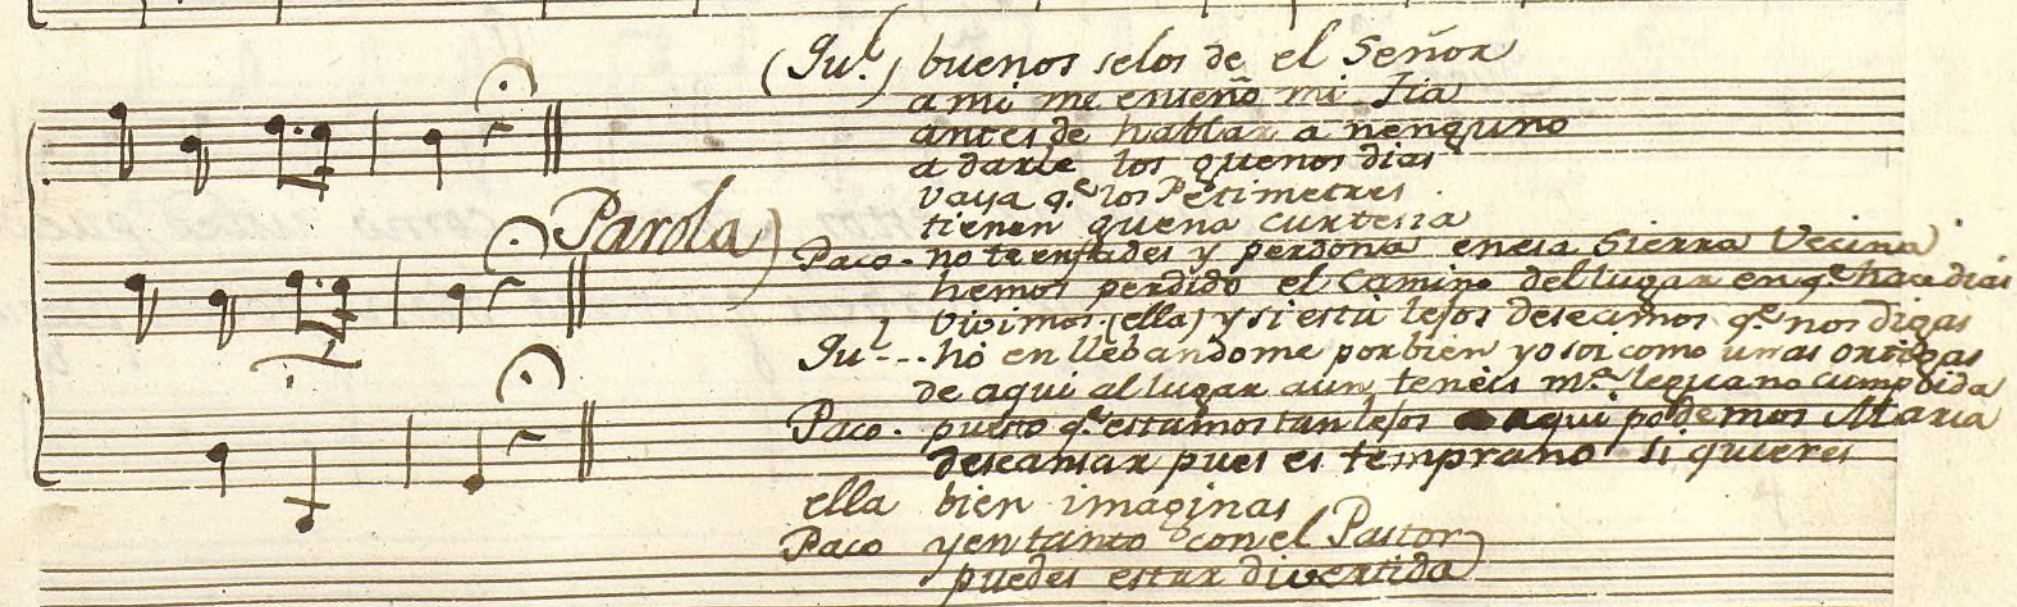 (Jul) buenos selos de el Señor
a mi me enseño mi tia
antes de hablar a nenguno
a darle los guenos dias
vaya q.e los Petimetres
tienen guena curtesia
Parola)
Paco - no te enfades y perdona en esa Sierra Vecina
hemos perdido el Camino del lugar en q.e hace dias
vivimos. (ella) y si està lejos deseamos q.e nos digas
Jul - - - hò en llebandome por bien yo soi como unas ortigas
de aqui al lugar aun teneis m.a legua no cumplida
Paco. puesto q.e estamos tan lejos aqui podemos Maria
descansar pues es temprano si quieres
ella bien imaginas
Paco y en tanto con el Pastor
puedes estar divertida